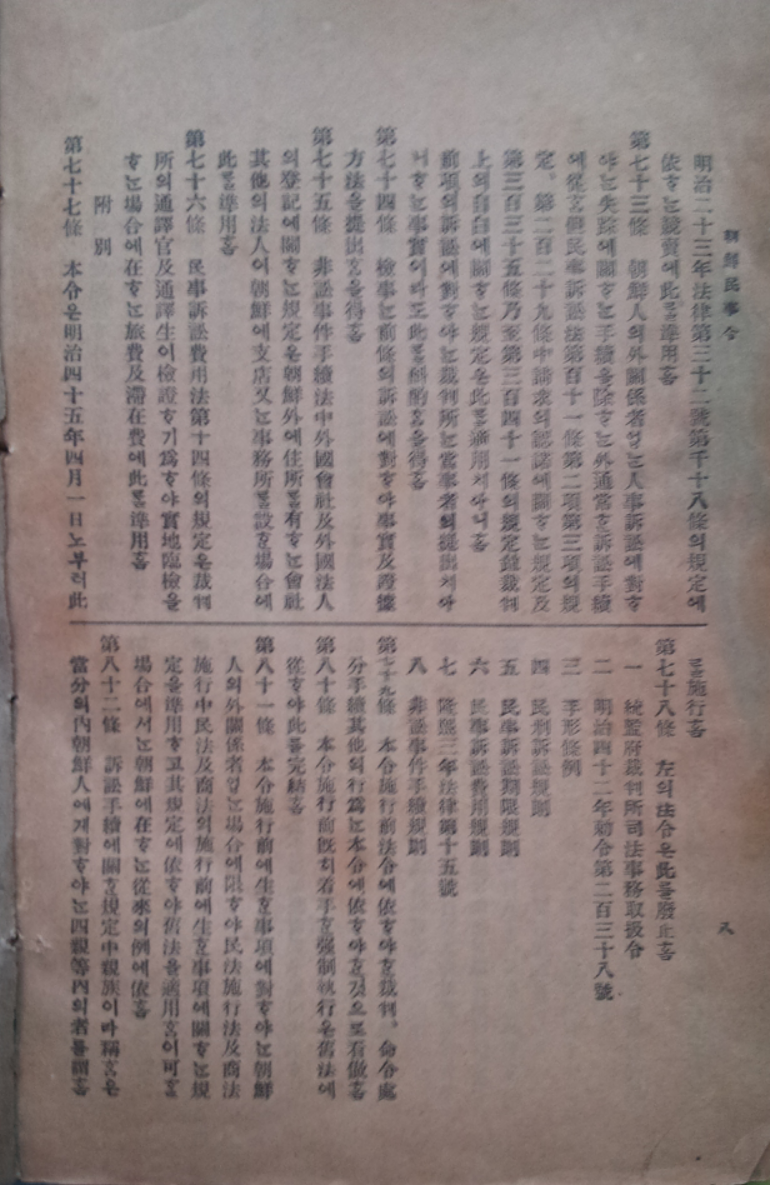 朝鮮民事令
明治二十三年法律第三十二號第千十八條의規定에
依ᄒᆞᄂᆞᆫ競賣에此ᄅᆞᆯ準用홈
第七十三條 朝鮮人의外關係者업ᄂᆞᆫ人事訴訟에對ᄒᆞ
야ᄂᆞᆫ失踪에關ᄒᆞᄂᆞᆫ手續을除ᄒᆞᄂᆞᆫ外通常ᄒᆞᆫ訴訟手續
에從홈但民事訴訟法第百十一條第二項第三項의規
定、第二百二十九條中請求의認諾에關ᄒᆞᄂᆞᆫ規定及
第三百三十五條乃至第三百四十一條의規定並裁判
上의自白에關ᄒᆞᄂᆞᆫ規定은此ᄅᆞᆯ適用치아니홈
前項의訴訟에對ᄒᆞ야ᄂᆞᆫ裁判所ᄂᆞᆫ當事者의提出치아
니ᄒᆞᄂᆞᆫ事實이라도此ᄅᆞᆯ斟酌홈을得홈
第七十四條 檢事ᄂᆞᆫ前條의訴訟에對ᄒᆞ야事實及證據
方法을提出홈을得홈
第七十五條 非訟事件手續法中外國會社及外國法人
의登記에關ᄒᆞᄂᆞᆫ規定은朝鮮外에住所ᄅᆞᆯ有ᄒᆞᄂᆞᆫ會社
其他의法人이朝鮮에支店又ᄂᆞᆫ事務所ᄅᆞᆯ設ᄒᆞᆫ場合에
此ᄅᆞᆯ準用홈
第七十六條 民事訴訟費用法第十四條의規定은裁判
所의通譯官及通譯生이檢證ᄒᆞ기爲ᄒᆞ야實地臨檢을
ᄒᆞᄂᆞᆫ場合에在ᄒᆞᄂᆞᆫ旅費及滯在費에此ᄅᆞᆯ準用홈
附別
第七十七條 本令은明治四十五年四月一日노부터此
ᄅᆞᆯ施行홈
第七十八條 左의法令은此를廢止홈
一 統監府裁判所司法事務取扱令
二 明治四十二年勅令第二百三十八號
三 手形條例
四 民刑訴訟規則
五 民事訴訟期限規則
六 民事訴訟費用規則
七 隆熙三年法律第十五號
八 非訟事件手續規則
第七十九條 本令施行前法令에依ᄒᆞ야ᄒᆞᆫ裁判、命令處
分手續其他의行爲ᄂᆞᆫ本令에依ᄒᆞ야ᄒᆞᆫ것으로看做홈
第八十條 本令施行前旣히着手ᄒᆞᆫ强制執行은舊法에
從ᄒᆞ야此를完結홈
第八十一條 本令施行前에生ᄒᆞᆫ事項에對ᄒᆞ야ᄂᆞᆫ朝鮮
人의外關係者업ᄂᆞᆫ場合에限ᄒᆞ야民法施行法及商法
施行中民法及商法의施行前에生ᄒᆞᆫ事項에關ᄒᆞᄂᆞᆫ規
定을準用ᄒᆞ고其規定에依ᄒᆞ야舊法을適用홈이可ᄒᆞᆫ
場合에서ᄂᆞᆫ朝鮮에在ᄒᆞᄂᆞᆫ從來의例에依홈
第八十二條 訴訟手續에關ᄒᆞᆫ規定中親族이라稱홈은
當分의內朝鮮人에게對ᄒᆞ야ᄂᆞᆫ四親等內의者를謂홈
八